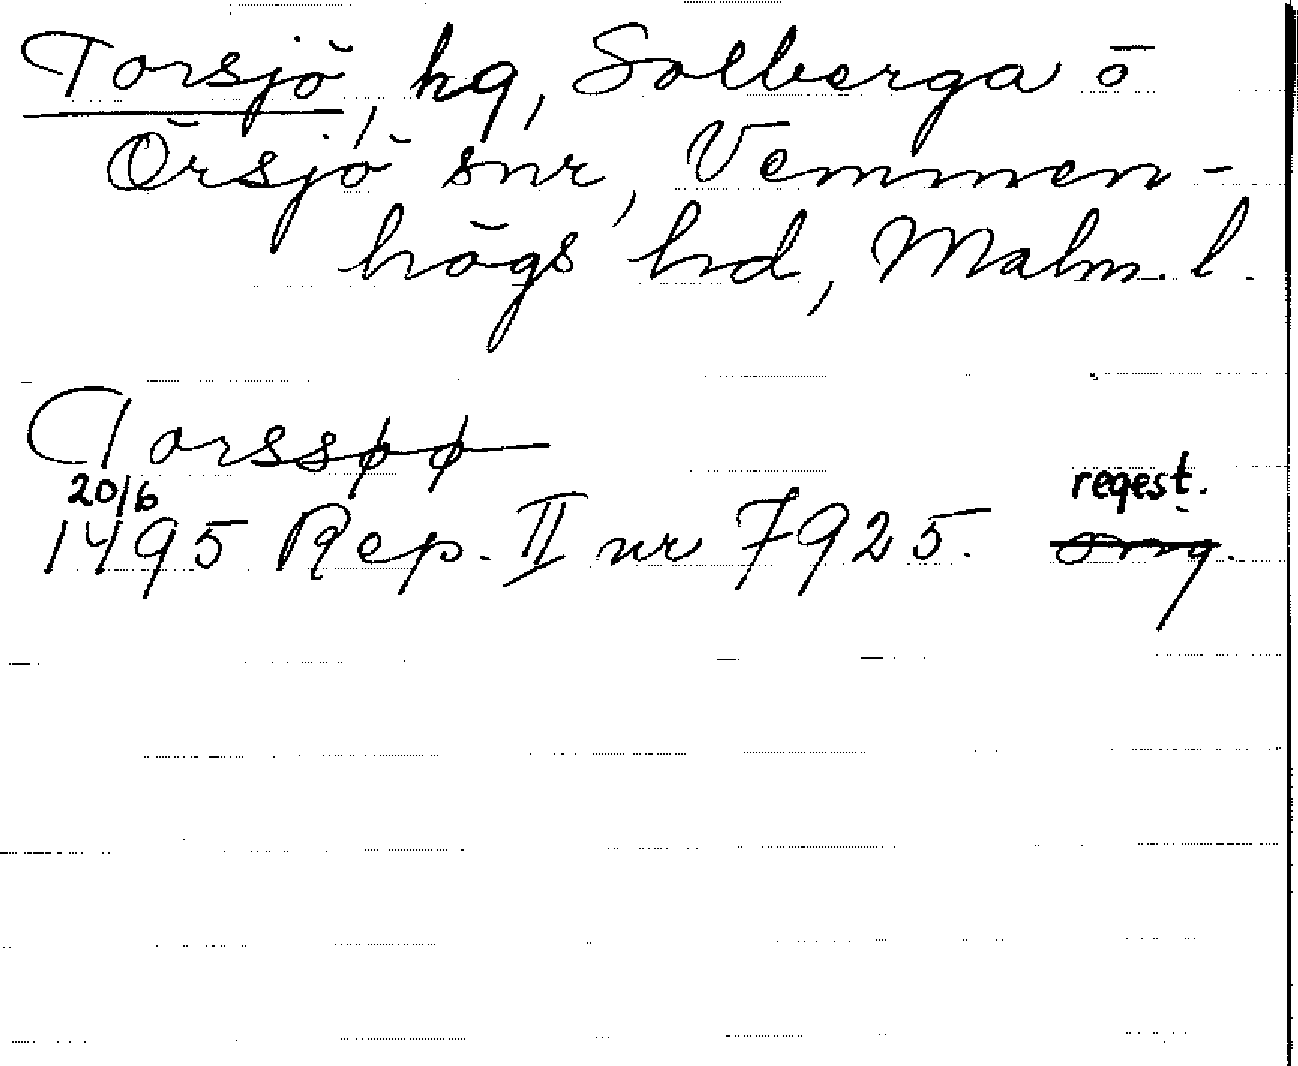 Torsjö, hg, Solberga o
Örsjö snr, Vemmen-
högs hd, Malm. l.
Torssøø
20/6
1495 Rep. II nr 7925. regest.
orig.